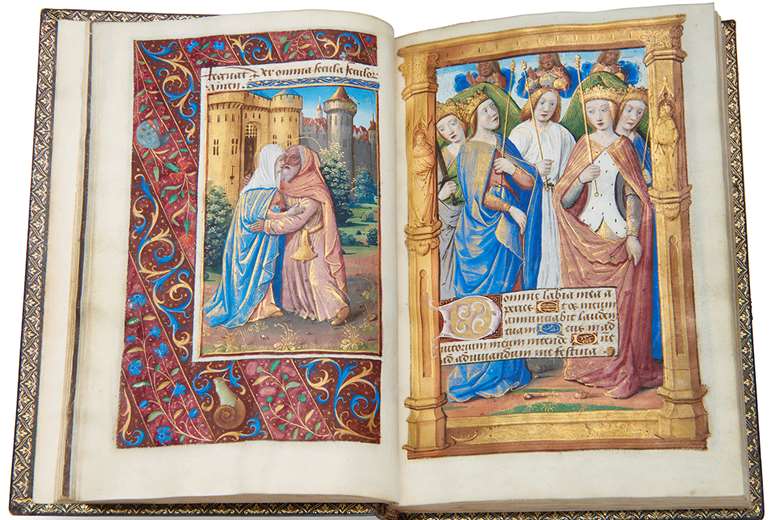 regnat Per omnia secula seculor
amen.
Domine labia mea a
peries Et os meum
annunciabit laudem
tuam Deus in ad
iutorium meum intende Dne
ad adiuuandum me festina